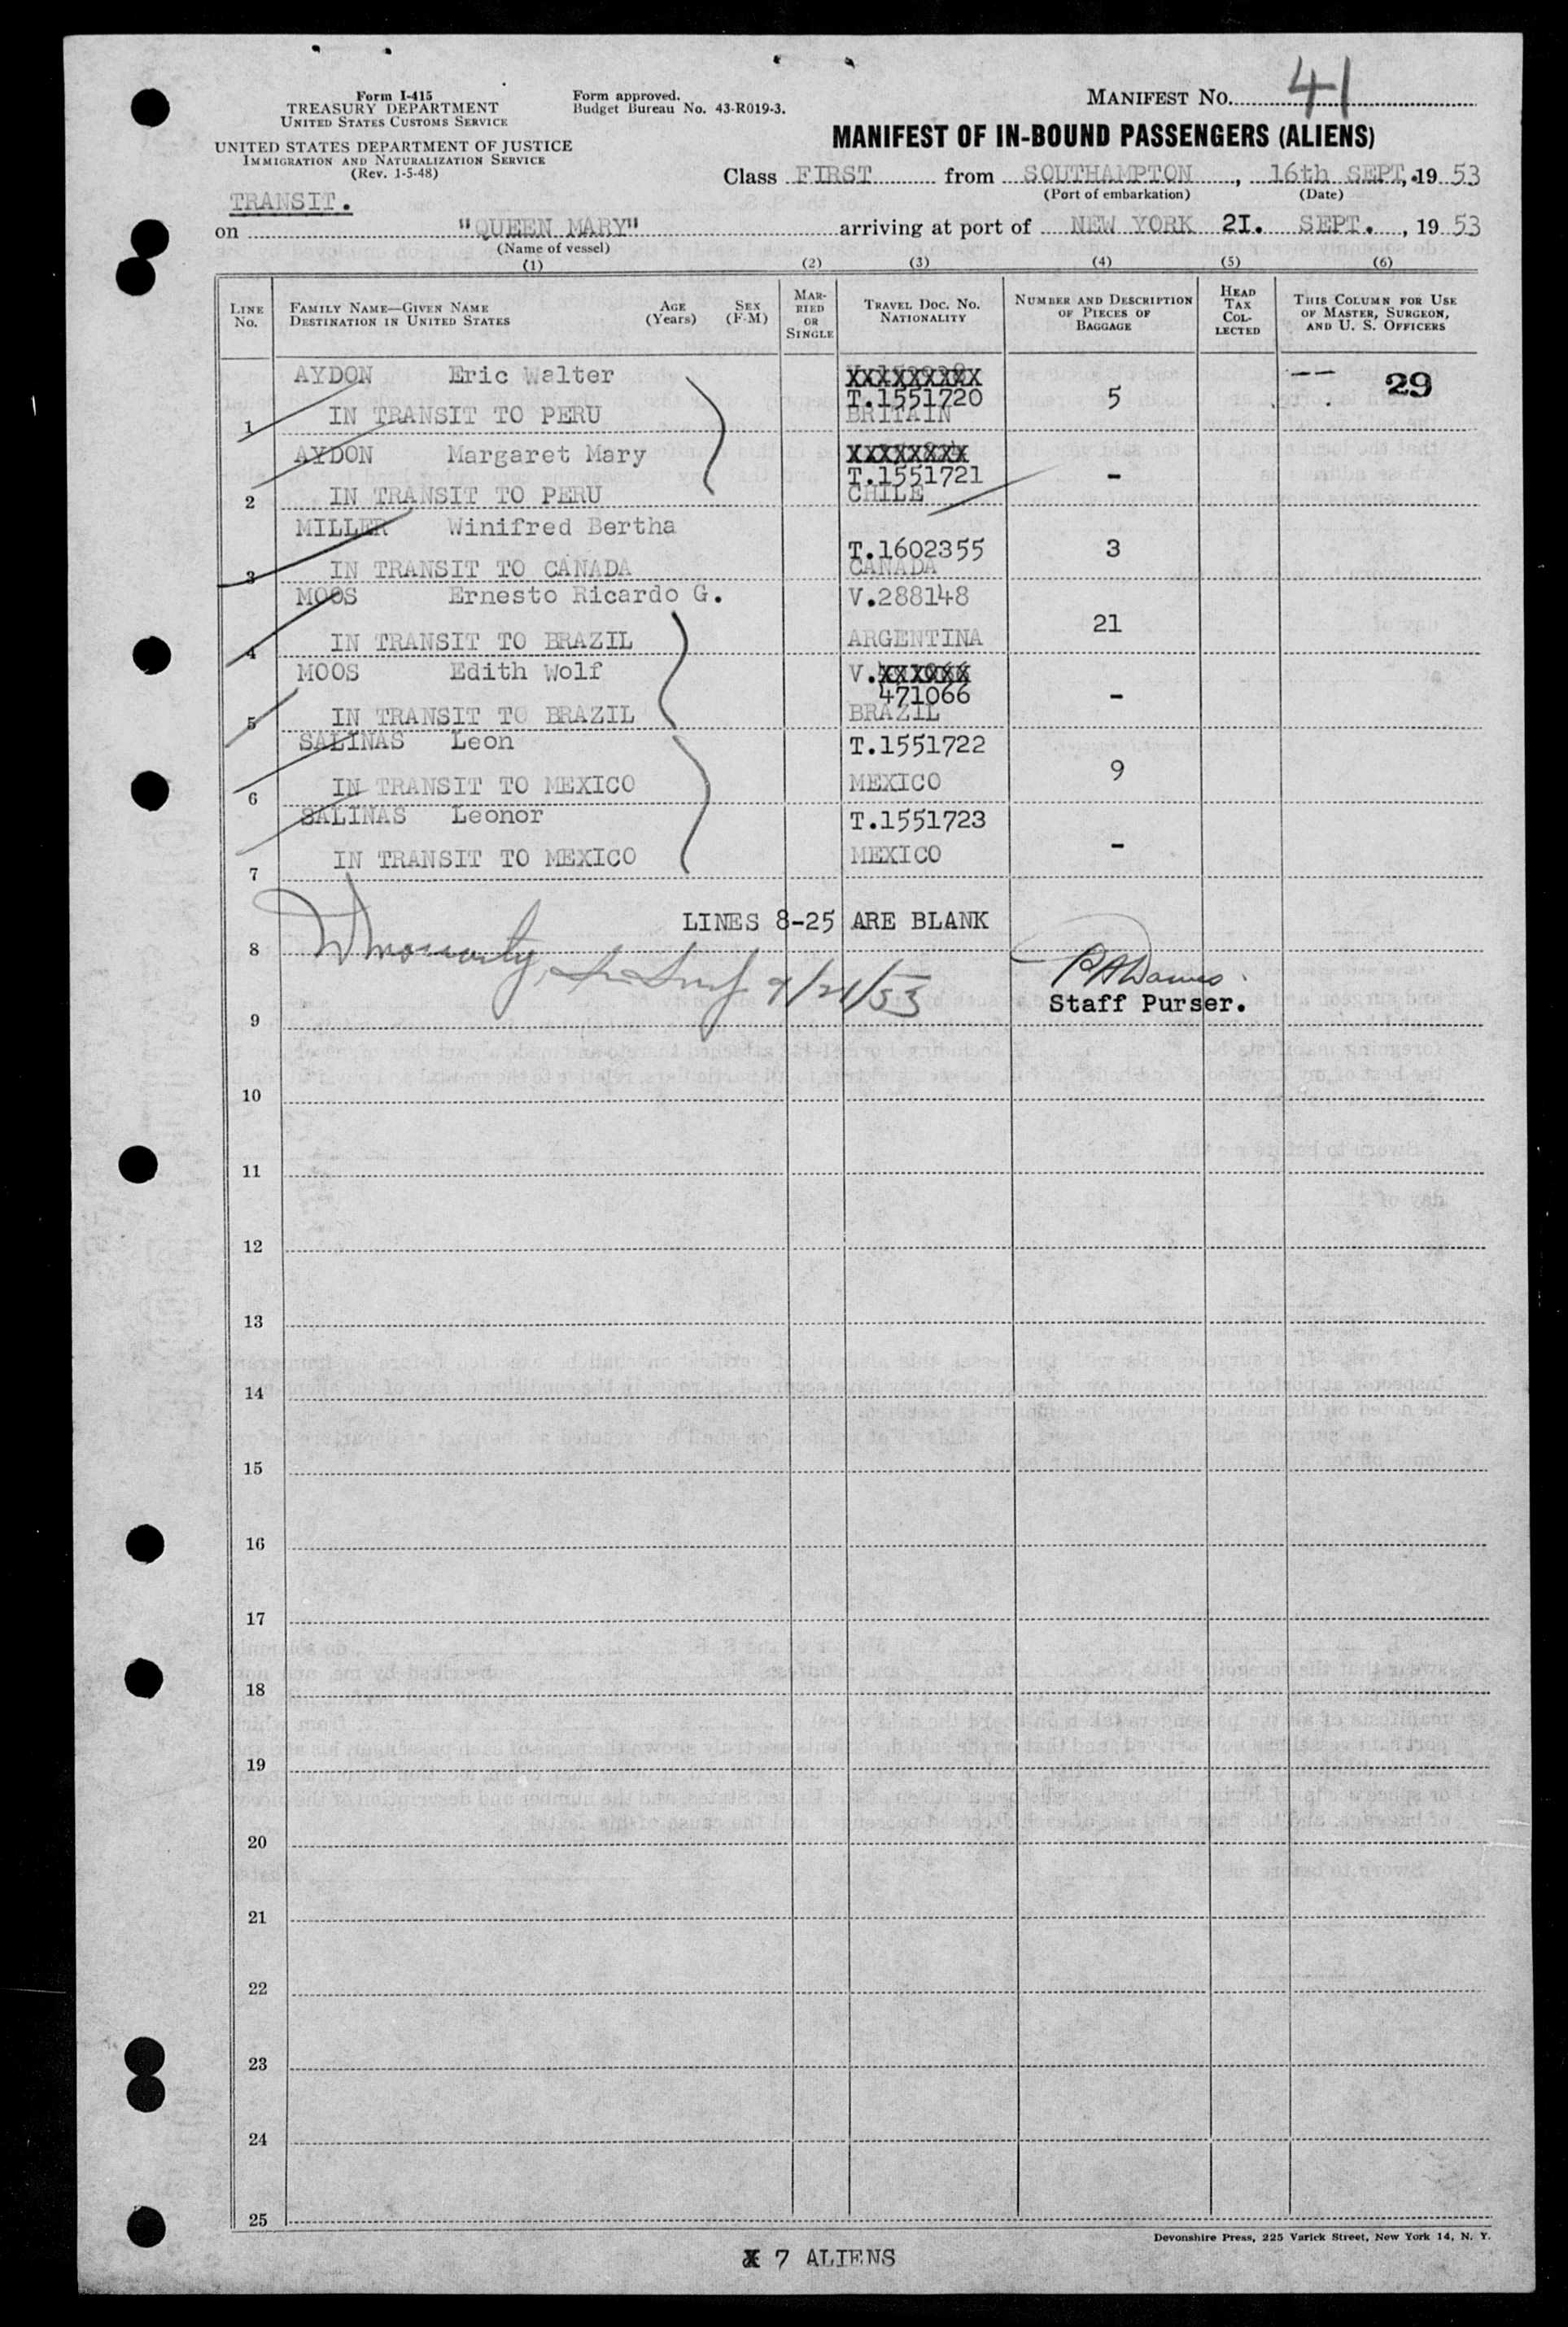 Form I-415
TREASURY DEPARTMENT
UNITED STATES CUSTOMS SERVICE
UNITED STATES DEPARTMENT OF JUSTICE
IMMIGRATION AND NATURALIZATION SERVICE
(Rev. 1-5-48)
Form approved.
Budget Bureau No. 43-R019-3.
MANIFEST NO. 41
MANIFEST OF IN-BOUND PASSENGERS (ALIENS)
Class FIRST from SOUTHAMPTON, 16th SEPT, 19 53
(Port of embarkation) (Date)
TRANSIT.
on "QUEEN MARY" arriving at port of NEW YORK 2I. SEPT., 19 53
(Name of vessel)
(1) (2) (3) (4) (5) (6)
LINE No.
FAMILY NAME—GIVEN NAME
DESTINATION IN UNITED STATES
AGE (Years)
SEX (F-M)
MARRIED OR SINGLE
TRAVEL DOC. NO. NATIONALITY
NUMBER AND DESCRIPTION OF PIECES OF BAGGAGE
HEAD TAX COLLECTED
THIS COLUMN FOR USE OF MASTER, SURGEON, AND U. S. OFFICERS
AYDON Eric Walter XXXXXXXXX -- 29
T.1551720 5
1 IN TRANSIT TO PERU BRITAIN
AYDON Margaret Mary XXXXXXXX
T.1551721 -
2 IN TRANSIT TO PERU CHILE
MILLER Winifred Bertha
T.1602355 3
3 IN TRANSIT TO CANADA CANADA
MOOS Ernesto Ricardo G. V.288148
21
4 IN TRANSIT TO BRAZIL ARGENTINA
MOOS Edith Wolf V.XXXXXX
471066 -
5 IN TRANSIT TO BRAZIL BRAZIL
SALINAS Leon T.1551722
9
6 IN TRANSIT TO MEXICO MEXICO
SALINAS Leonor T.1551723
-
7 IN TRANSIT TO MEXICO MEXICO
LINES 8-25 ARE BLANK
8
9/21/53
Staff Purser.
9
10
11
12
13
14
15
16
17
18
19
20
21
22
23
24
25
Devonshire Press, 225 Varick Street, New York 14, N. Y.
X 7 ALIENS